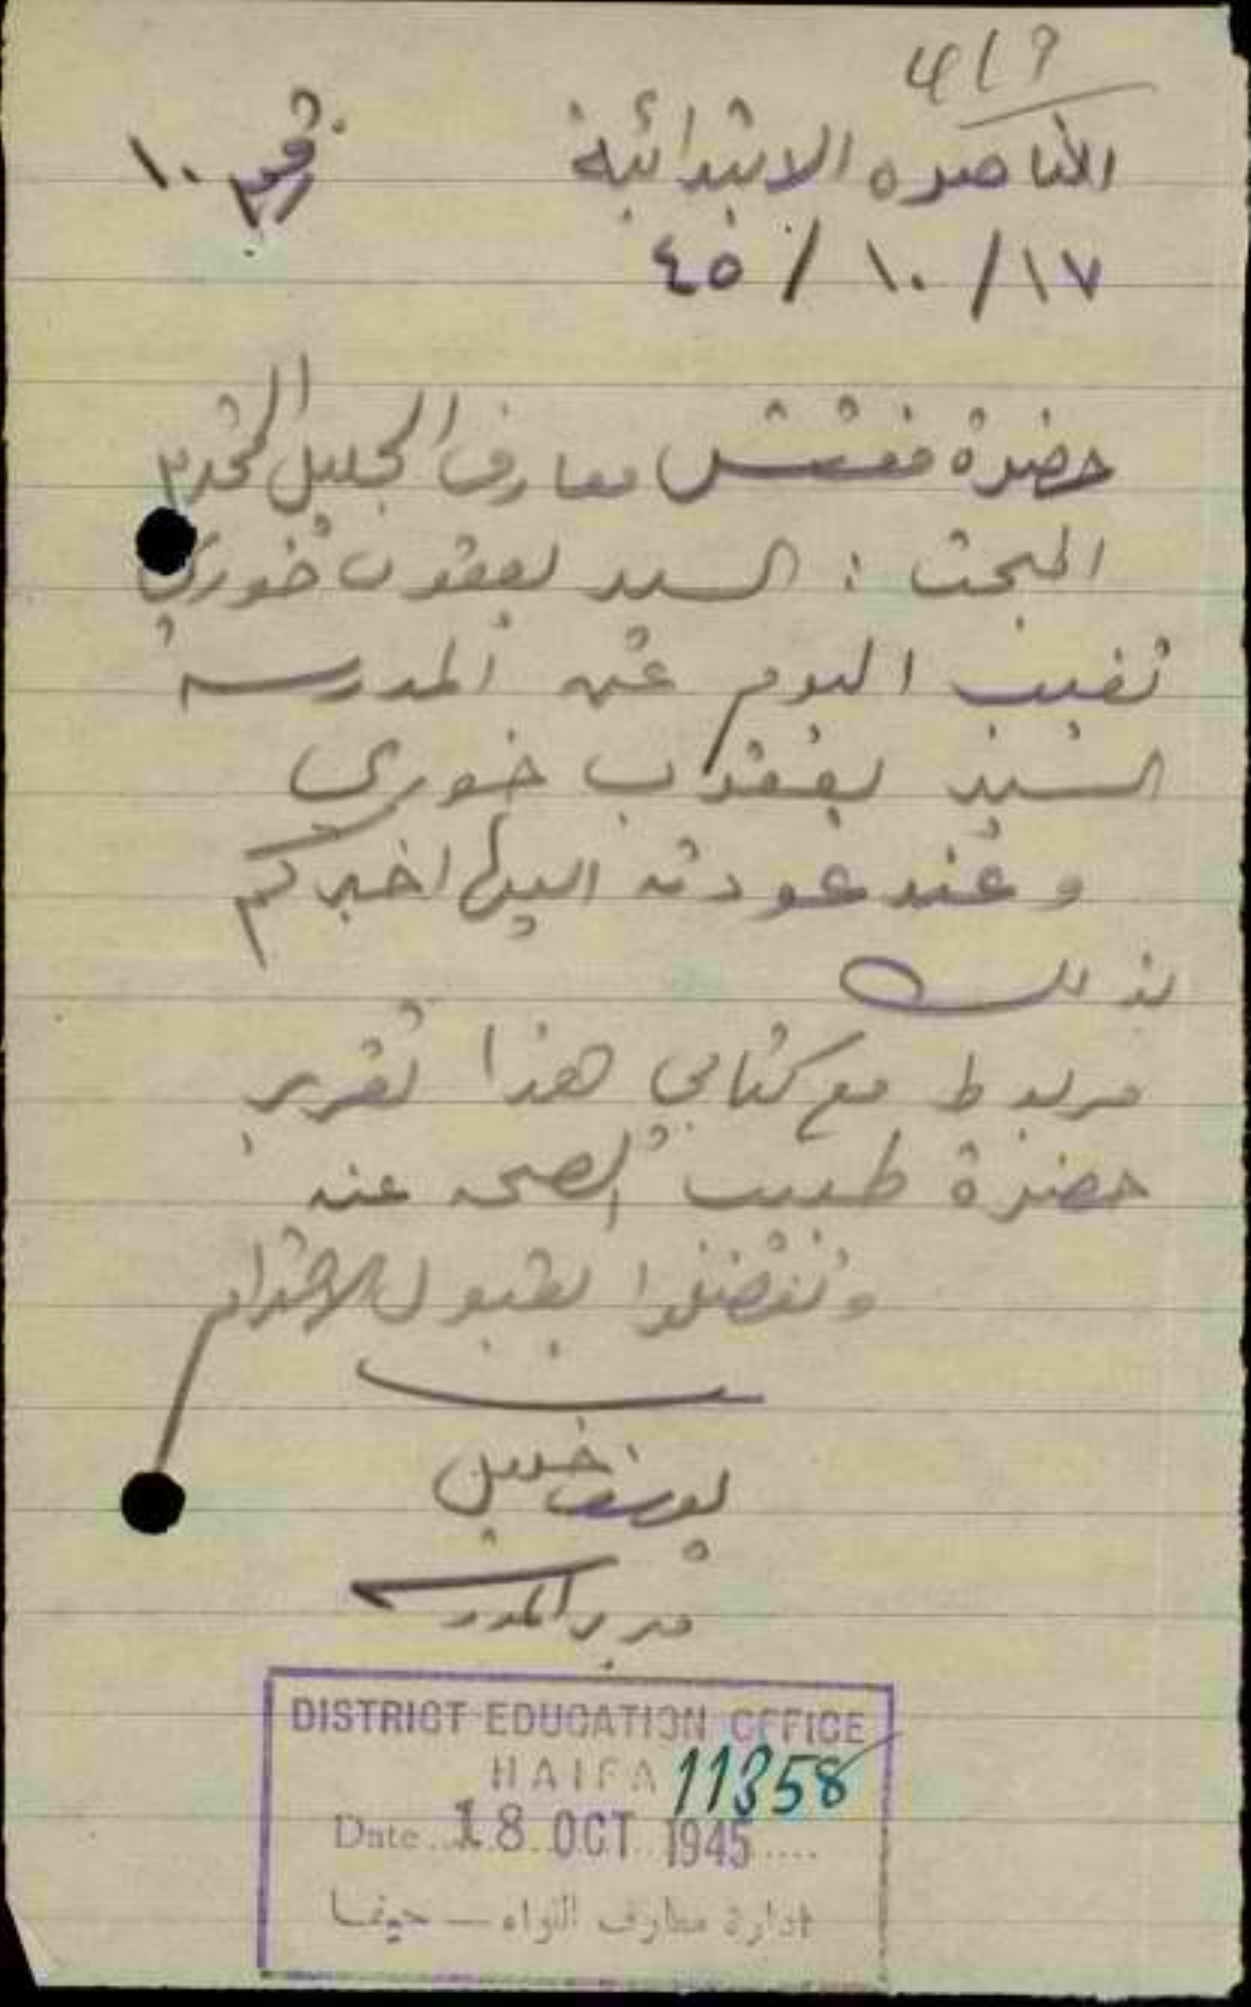 419
الناصره الابتدائية رقم ١٠
١٧/ ١٠ / ٤٥
حضرة مفتش معارف الجليل المحترم
المبحث : السيد يعقوب خوري
تغيب اليوم عن المدرسه
السيد يعقوب خوري
وعند عودته اليها اخبركم
بذلك
مربوط مع كتابي هذا تقرير
حضرة طبيب الصحه عنه
وتفضلوا بقبول الاحترام
يوسف خليل
مدير المدرسة
DISTRICT EDUCATION OFFICE
HAIFA 11358
Date 18 OCT 1945
ادارة معارف اللواء - حيفا